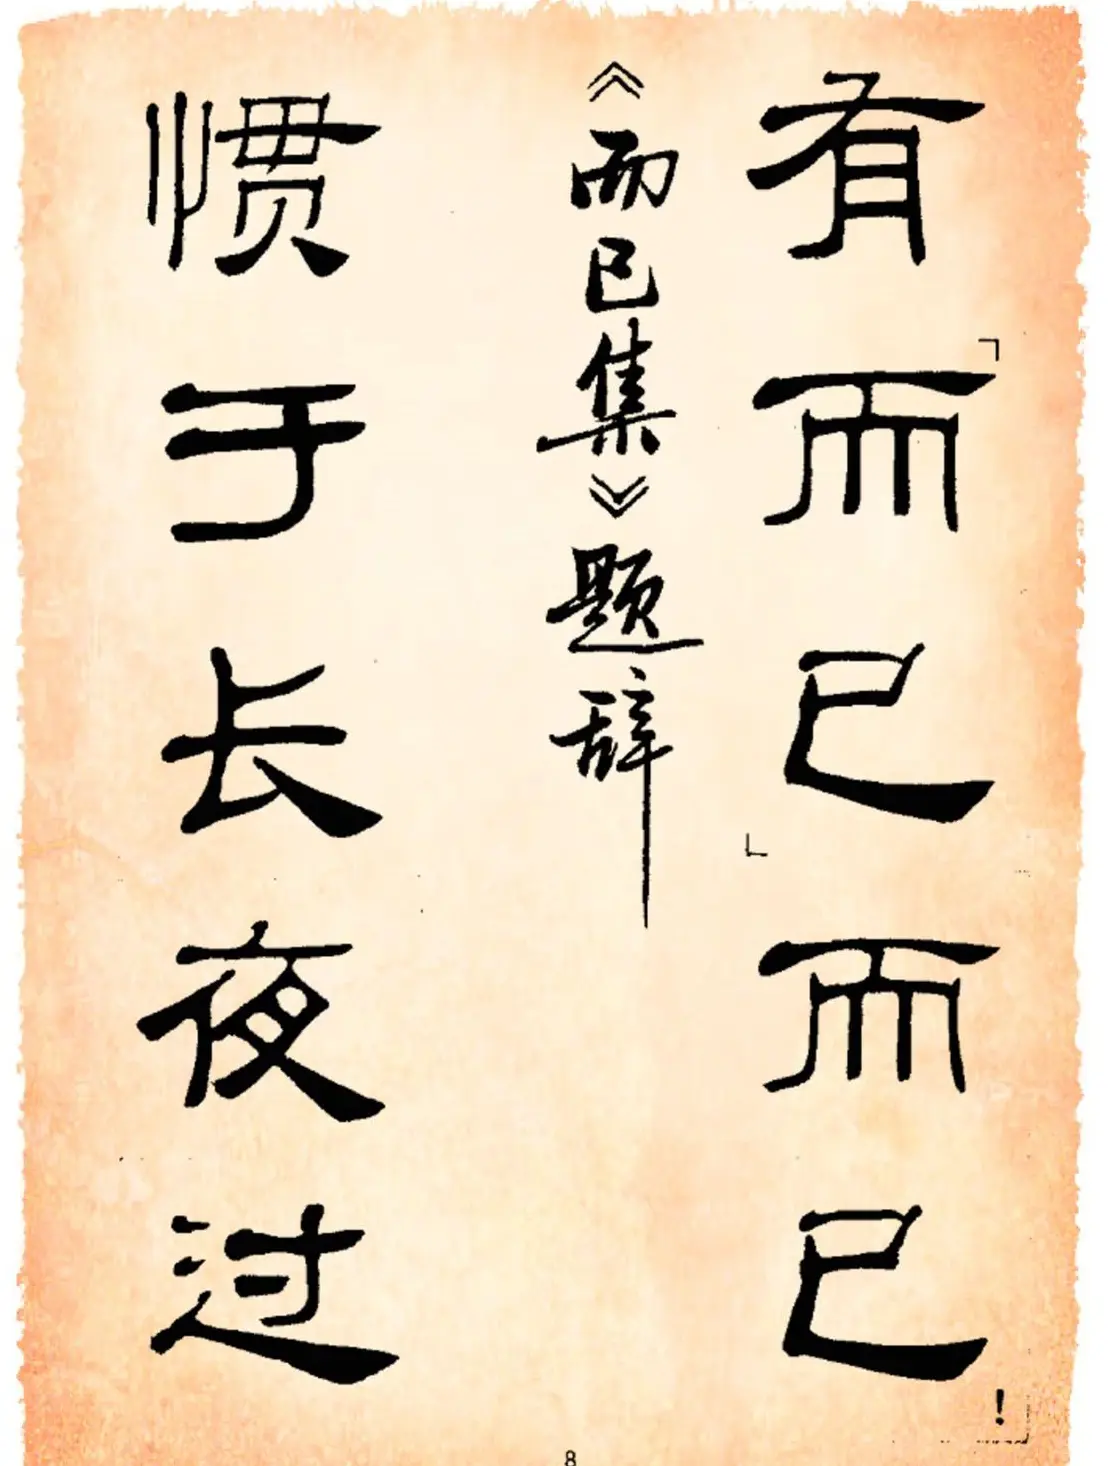 有「而已」而已！
《而已集》题辞
惯于长夜过
8